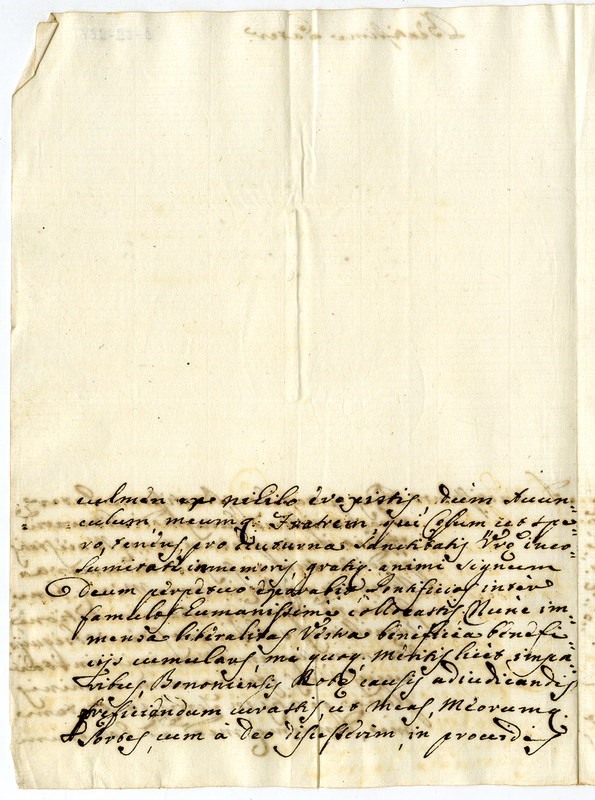 culmen ex nihilo evexistis, dùm Avun=
culum, meumq; Fratrem, qui Cœlum, ut spe=
ro, tenens, pro diuturna Sanctitatis Vrę inco=
lumitate, immemoris, gratiq; animi signum
Deum perpetuò exorabit Pontificios inter
famulos humanissimè collocastis, Nunc im=
mensa liberalitas Vestra beneficia benefi
cijs cumulans, me quoq, meritis licet impa=
ribus Bononiensis Rotę causis adiudicandis
pręficiendum curastis, ut meas, Meorumq
sortes, cum à deo discesserim, in procerides